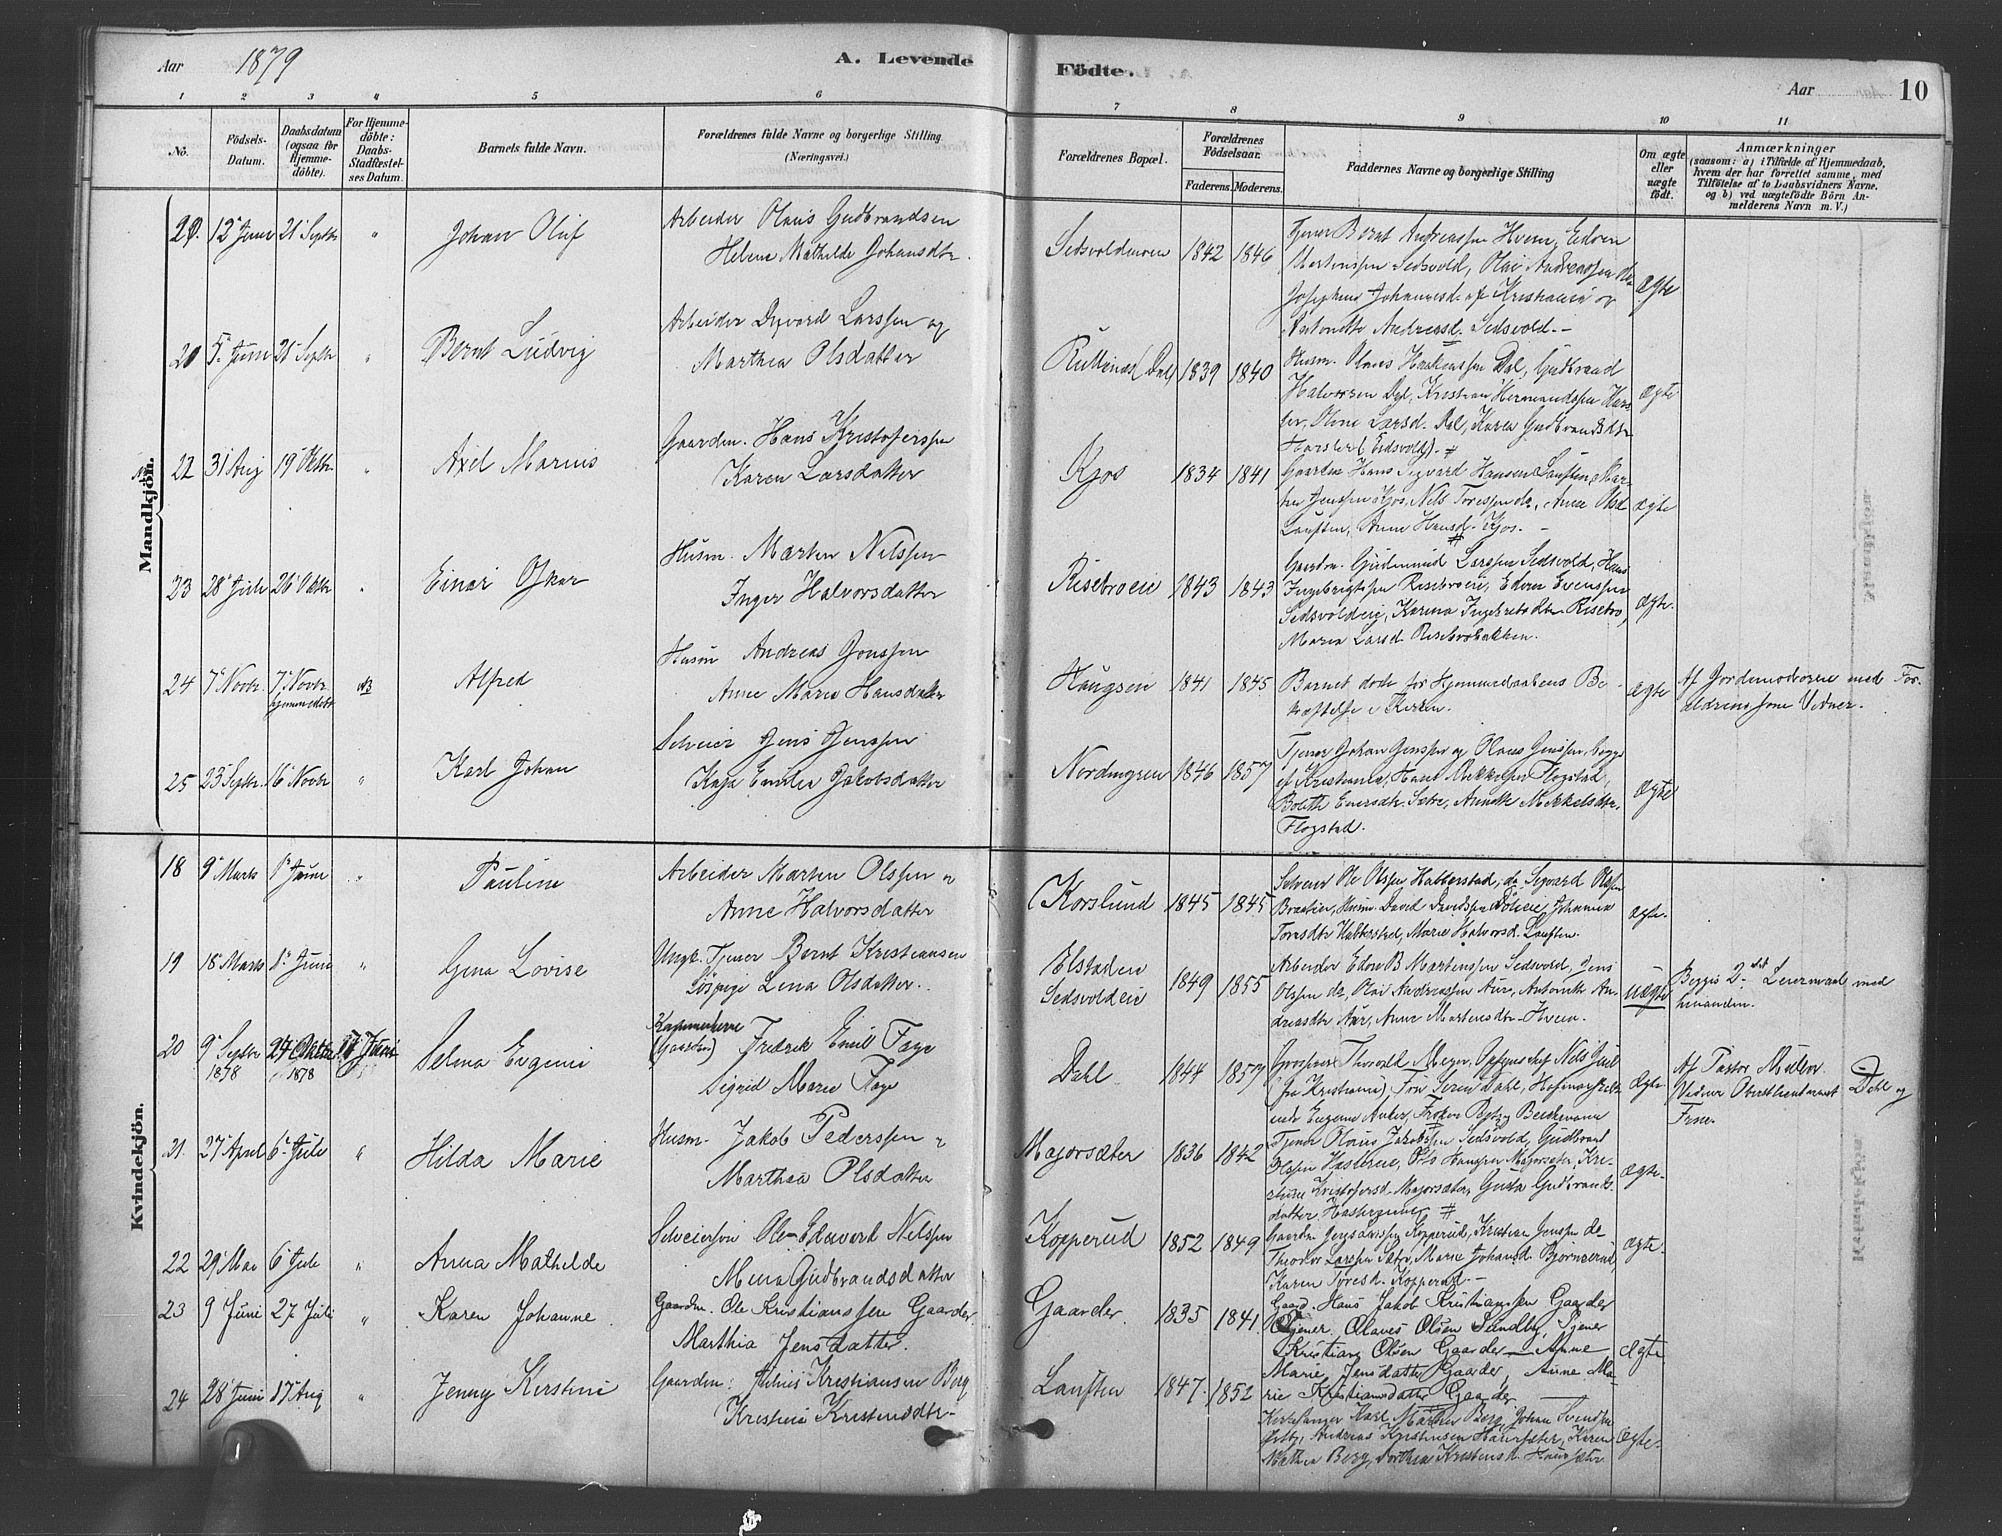 Aar 1879 A. Levende Födte. Aar 10
1 2 3 4 5 6 7 8 9 10 11
No. Födsels-Datum. Daabsdatum (ogsaa for Hjemmedöbte). For Hjemmedöbte: Daabs-Stadfæstelses Datum. Barnets fulde Navn. Forældrenes fulde Navne og borgerlige Stilling. (Næringsvei.) Forældrenes Bopæl. Forældrenes Födselsaar. Faderens. Moderens. Faddernes Navne og borgerlige Stilling Om ægte eller uægte födt. Anmærkninger (saasom: a) i Tilfælde af Hjemmedaab, hvem der har forrettet samme, med Tilföielse af to Daabsvidners Navne, og b) ved uægtefödte Börn Anmelderens Navn m. V.)
Mandkjön.
12 Juni 21 Septbr " Johan Oluf
Arbeider Olaus Gudbrandsen
Helene Mathilde Johansdtr.
1842 1846
Tjener Bernt Andreassen Hvem, Edvin
Martinssen Sedsvold, Olai Andreassen do
Josephine Johannesd. af Kristiania og
Antonette Andreasd. Sedsvold. –
Ægte
5 Juni 21 Septbr " Bernt Ludvig
Arbeider Larssen og
Marthea Olsdatter
(Dal) 1839 1840
Husm. Olaus Dal, Gudbrand
Halvorsen Dal, Kristian Hermandssen
Oline Larsd. Dal, Karen Gudbrandsdtr
(Eidsvold). –
Ægte
22 31 Aug 19 Oktbr. " Axel Marius
Gaardm. Hans Kristofersen
Karen Larsdatter
Kjos 1834 1841
Gaardm Hans Sigvard Hansen Lauften,
Jenssen Kjos, Nils Toressen do, Anne Olsd
Lauften, Anne Hansd. Kjos. –
Ægte
23 28 Juli 26 Oktbr " Einar Oskar
Husm. Marten Nilssen
Inger Halvorsdatter
Risebroeie 1843 1843
Gaardm. Gudmund Larssen Sedsvold, Hans
Ingebrigtssen Risebroeie, Edvin Evenssen
Sedsvoldeie, Karina Risebro,
Maria Larsd. Risebrobakken.
Ægte.
24 7 Novbr. 7 Novbr hjemmedøbt Alfred
Husm Andreas Jonssen
Anne Marie Hansdatter
Haugseie 1841 1845
Barnet døde før Hjemmedaabens Be-
kræftelse i Kirken.
Ægte
Af Jordemoderen med For-
ældrene som Vidner.
25 23 Septbr. 16 Novbr " Karl Johan
Selveier Jens Jenssen
Kaja Emilie Jakobsdatter
Nordengen 1846 1857
Tjener Johan Jenssen og Olaus Jenssen, begge
af Kristiania, Hans Mikkelsen Flogstad,
Bolette Sætre, Annette Mikkelsdtr.
Flogstad.
Ægte
Kvindekjön.
18 9 Marts 1 Juni " Pauline
Arbeider Marten Olssen
Anne Halvorsdatter
Korslund 1845 1845
Selveier Ole Olssen Habberstad, do Sigvard Olssen
Husm. David Davidssen Døleie, Johanna
Toresdtr Habberstad, Marie Halvorsd. Lauften.
Ægte.
19 18 Marts 1 Juni " Gina Lovise
Ungk. Tjener Bernt Kristiansen
Pige Lena Olsdatter.
Elstadeie
Sedsvoldeie 1849 1855
Arbeider Edvin B Martenssen Sedsvold, Jens
Olssen do, Olai Andreassen Aur, Antonette An-
dreasdtr Aur, Anne Martensdtr Hvem.
Uægte
Begges 2det Leiermaal med
hinanden.
20 9 Septbr 1878 24 Oktbr 1878 Juni Selma Eugenie
(Gaardm) Fredrik Emil Faye
Sigrid Marie Faye
Dahl 1844 1857
Thorvald Meyer, Nils Juul
(fra Kristiania), Fru Dahl,
Eugenie Anker, Frøken Betzy Beichmann
Ægte
Af Pastor Müller.
Vidner Oberstlieutenant Dahl og
Frue.
21. 27 April 6 Juli " Hilda Marie
Husm. Jakob Pederssen
Marthea Olsdatter
Majorsæter 1836 1842
Tjener Olaus Jakobssen Sedsvold, Gudbrand
Olssen Hanssen Majorsæter,
Kristofersd. Majorsæter, Gusta Gudbrands-
datter
Ægte.
22 29 Mai 6 Juli " Anna Mathilde
Selveiersøn Ole Edavart Nilssen
Mina Gudbrandsdatter
Kopperud 1852 1849
Gaardm Jens Larssen Kopperud, Kristian Jenssen do
Theodor Larssen Sætre, Marie Johansd. Bjørnerud,
Karen Toresd. Kopperud. –
Ægte.
23 9 Juni 27 Juli " Karen Johanne
Gaardm. Ole Kristianssen Gaarder
Marthia Jensdatter.
Gaarder. 1835 1841.
Gaard. Hans Jakob Kristianssen Gaarder
Tjener Olaves Olsen Sundby, Tjener
Kristian Olsen Gaarder – Anne
Marie Jensdatter Gaarder, Anne Ma-
rie Kristiansdatter Gaarder
Ægte
24 28 Juni 17 Aug " Jenny Kirstine
Gaardm: Kristiansen Berg
Kristine Kristensdtr.
Lauften 1847. 1852
Kirkesanger Karl Marten Berg, Johan
Andreas Kristensen Karen
Mathea Berg, Dorthea Kristensd.
Ægte.